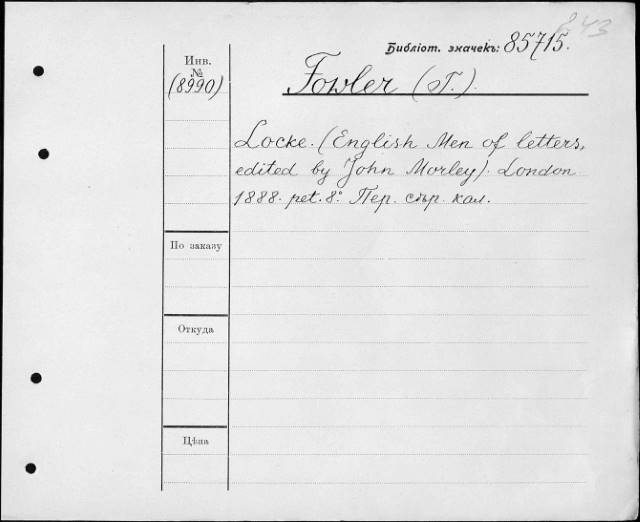 843
Библіот. значекъ: 85715.
Инв.
№
(8990)
Fowler (T.).
Locke. (English Men of letters,
edited by John Morley). London
1888. pet. 8º. Пер. сѣр. кал.
По заказу
Откуда
Цѣна